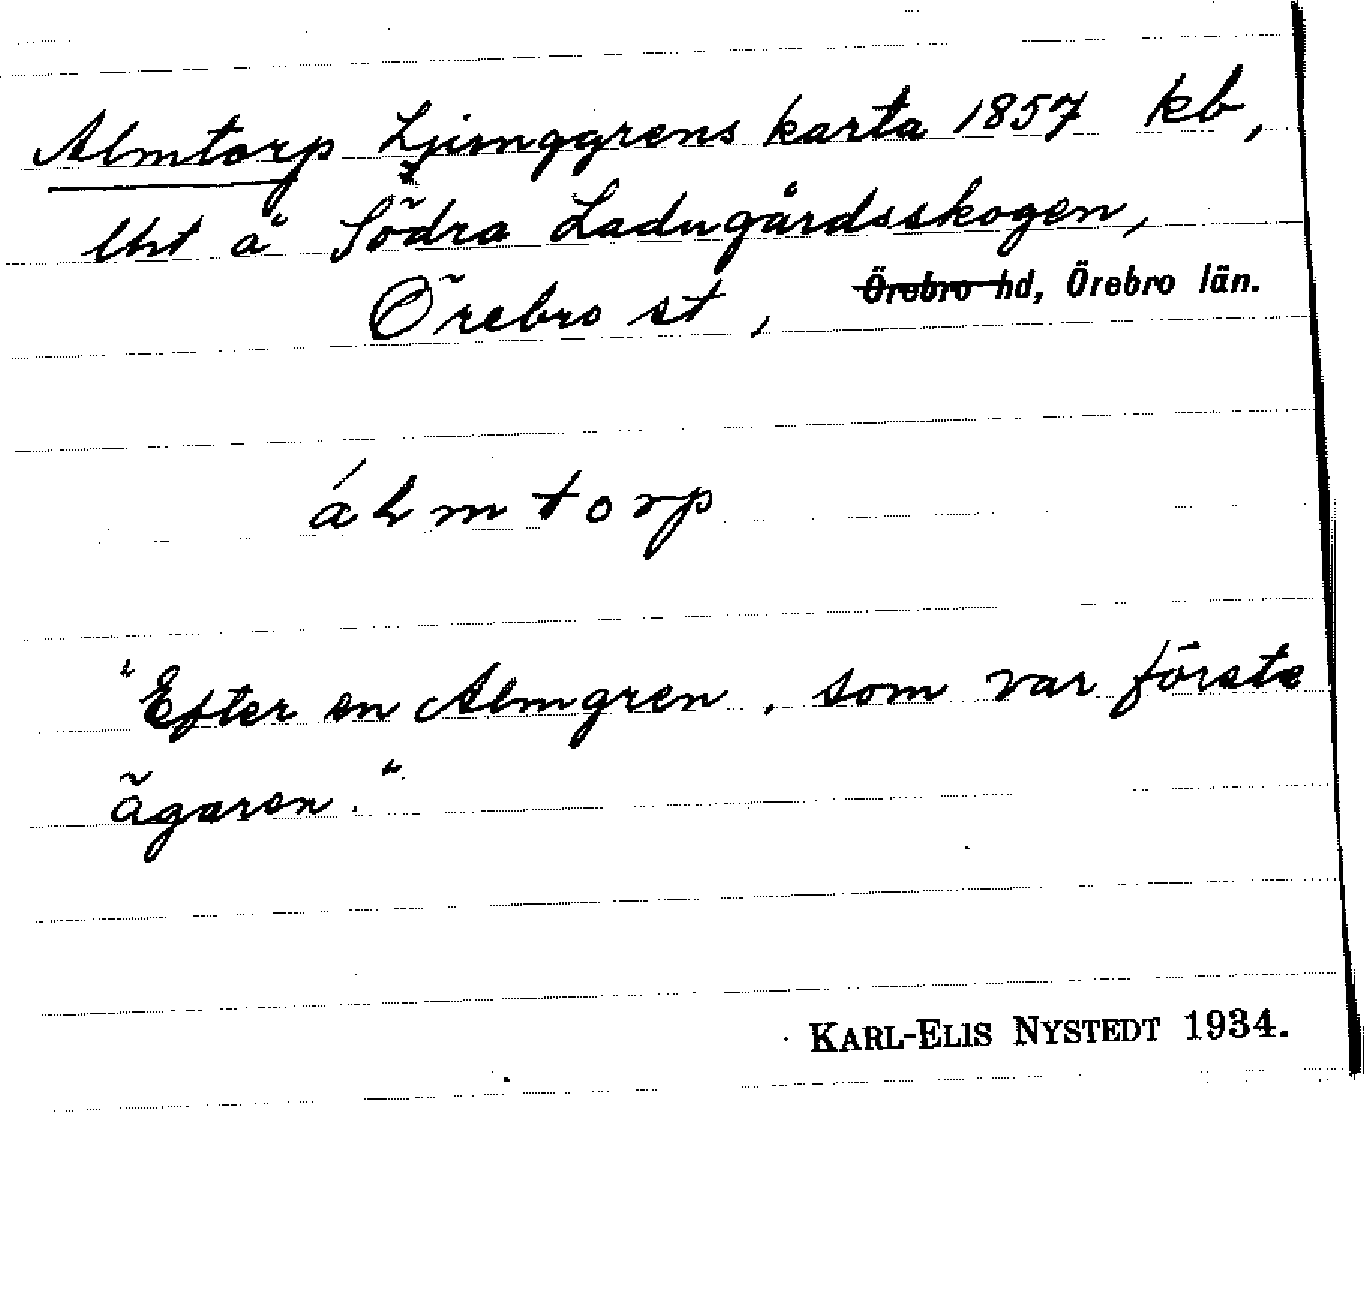 Almtorp Ljunggrens karta 1857 kb,
lht å Södra Ladugårdsskogen,
Örebro st, Örebro hd, Örebro län.
álmtorp
"Efter en Almgren, som var förste
ägaren."
KARL-ELIS NYSTEDT 1934.